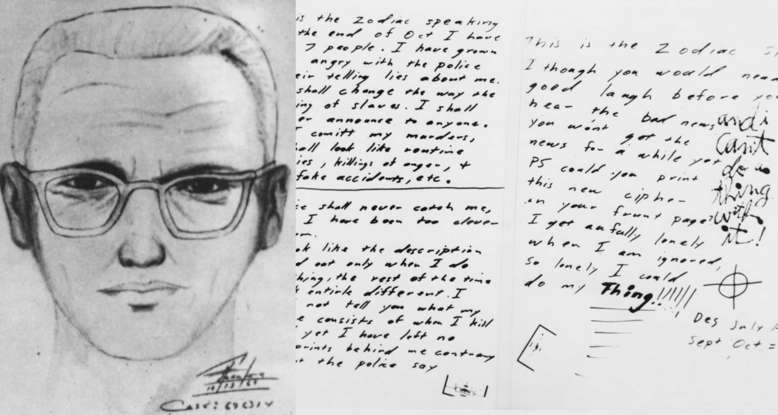 is the Zodiac speaking
the end of Oct I have
7 people. I have grown
angry with the police
their telling lies about me.
shall change the way the
ing of slaves. I shall
announce to anyone.
I comitt my murders,
shall look like routine
ies, killings of anger, +
fake accidents, etc.
shall never catch me,
I have been too clever
look like the description
out only when I do
thing, the rest of the time
entirle different. I
not tell you what my
consists of when I kill
yet I have left no
prints behind me contrary
the police say
Case:
This is the Zodiac
I though you would need
good laugh before you
hear the bad news
you won't get the
news for a while yet
PS could you print
this new cipher
on your front page?
I get awfully lonely
when I am ignored,
so lonely I could
do my Thing!!!!!!
and i
can't
do a
thing
with
it!
Des July
Sept Oct =